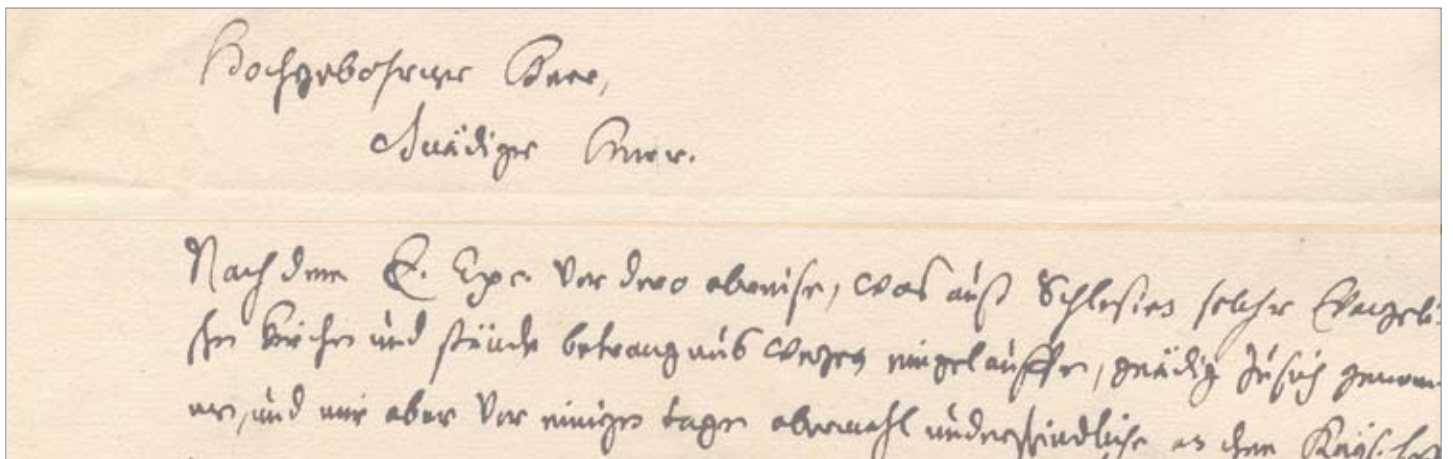 Hochgebohrner Herr,
Gnädiger Herr.
Nach deme E. Exc. vor dero abreise, was auß Schlesien solcher Evangeli-
schen Kirchen und stände betrangnüs wegen eingelauffen, gnädig zu sich genom-
men, und mir aber vor einigen tagen abermahl underschiedliche an den Kays. hoff